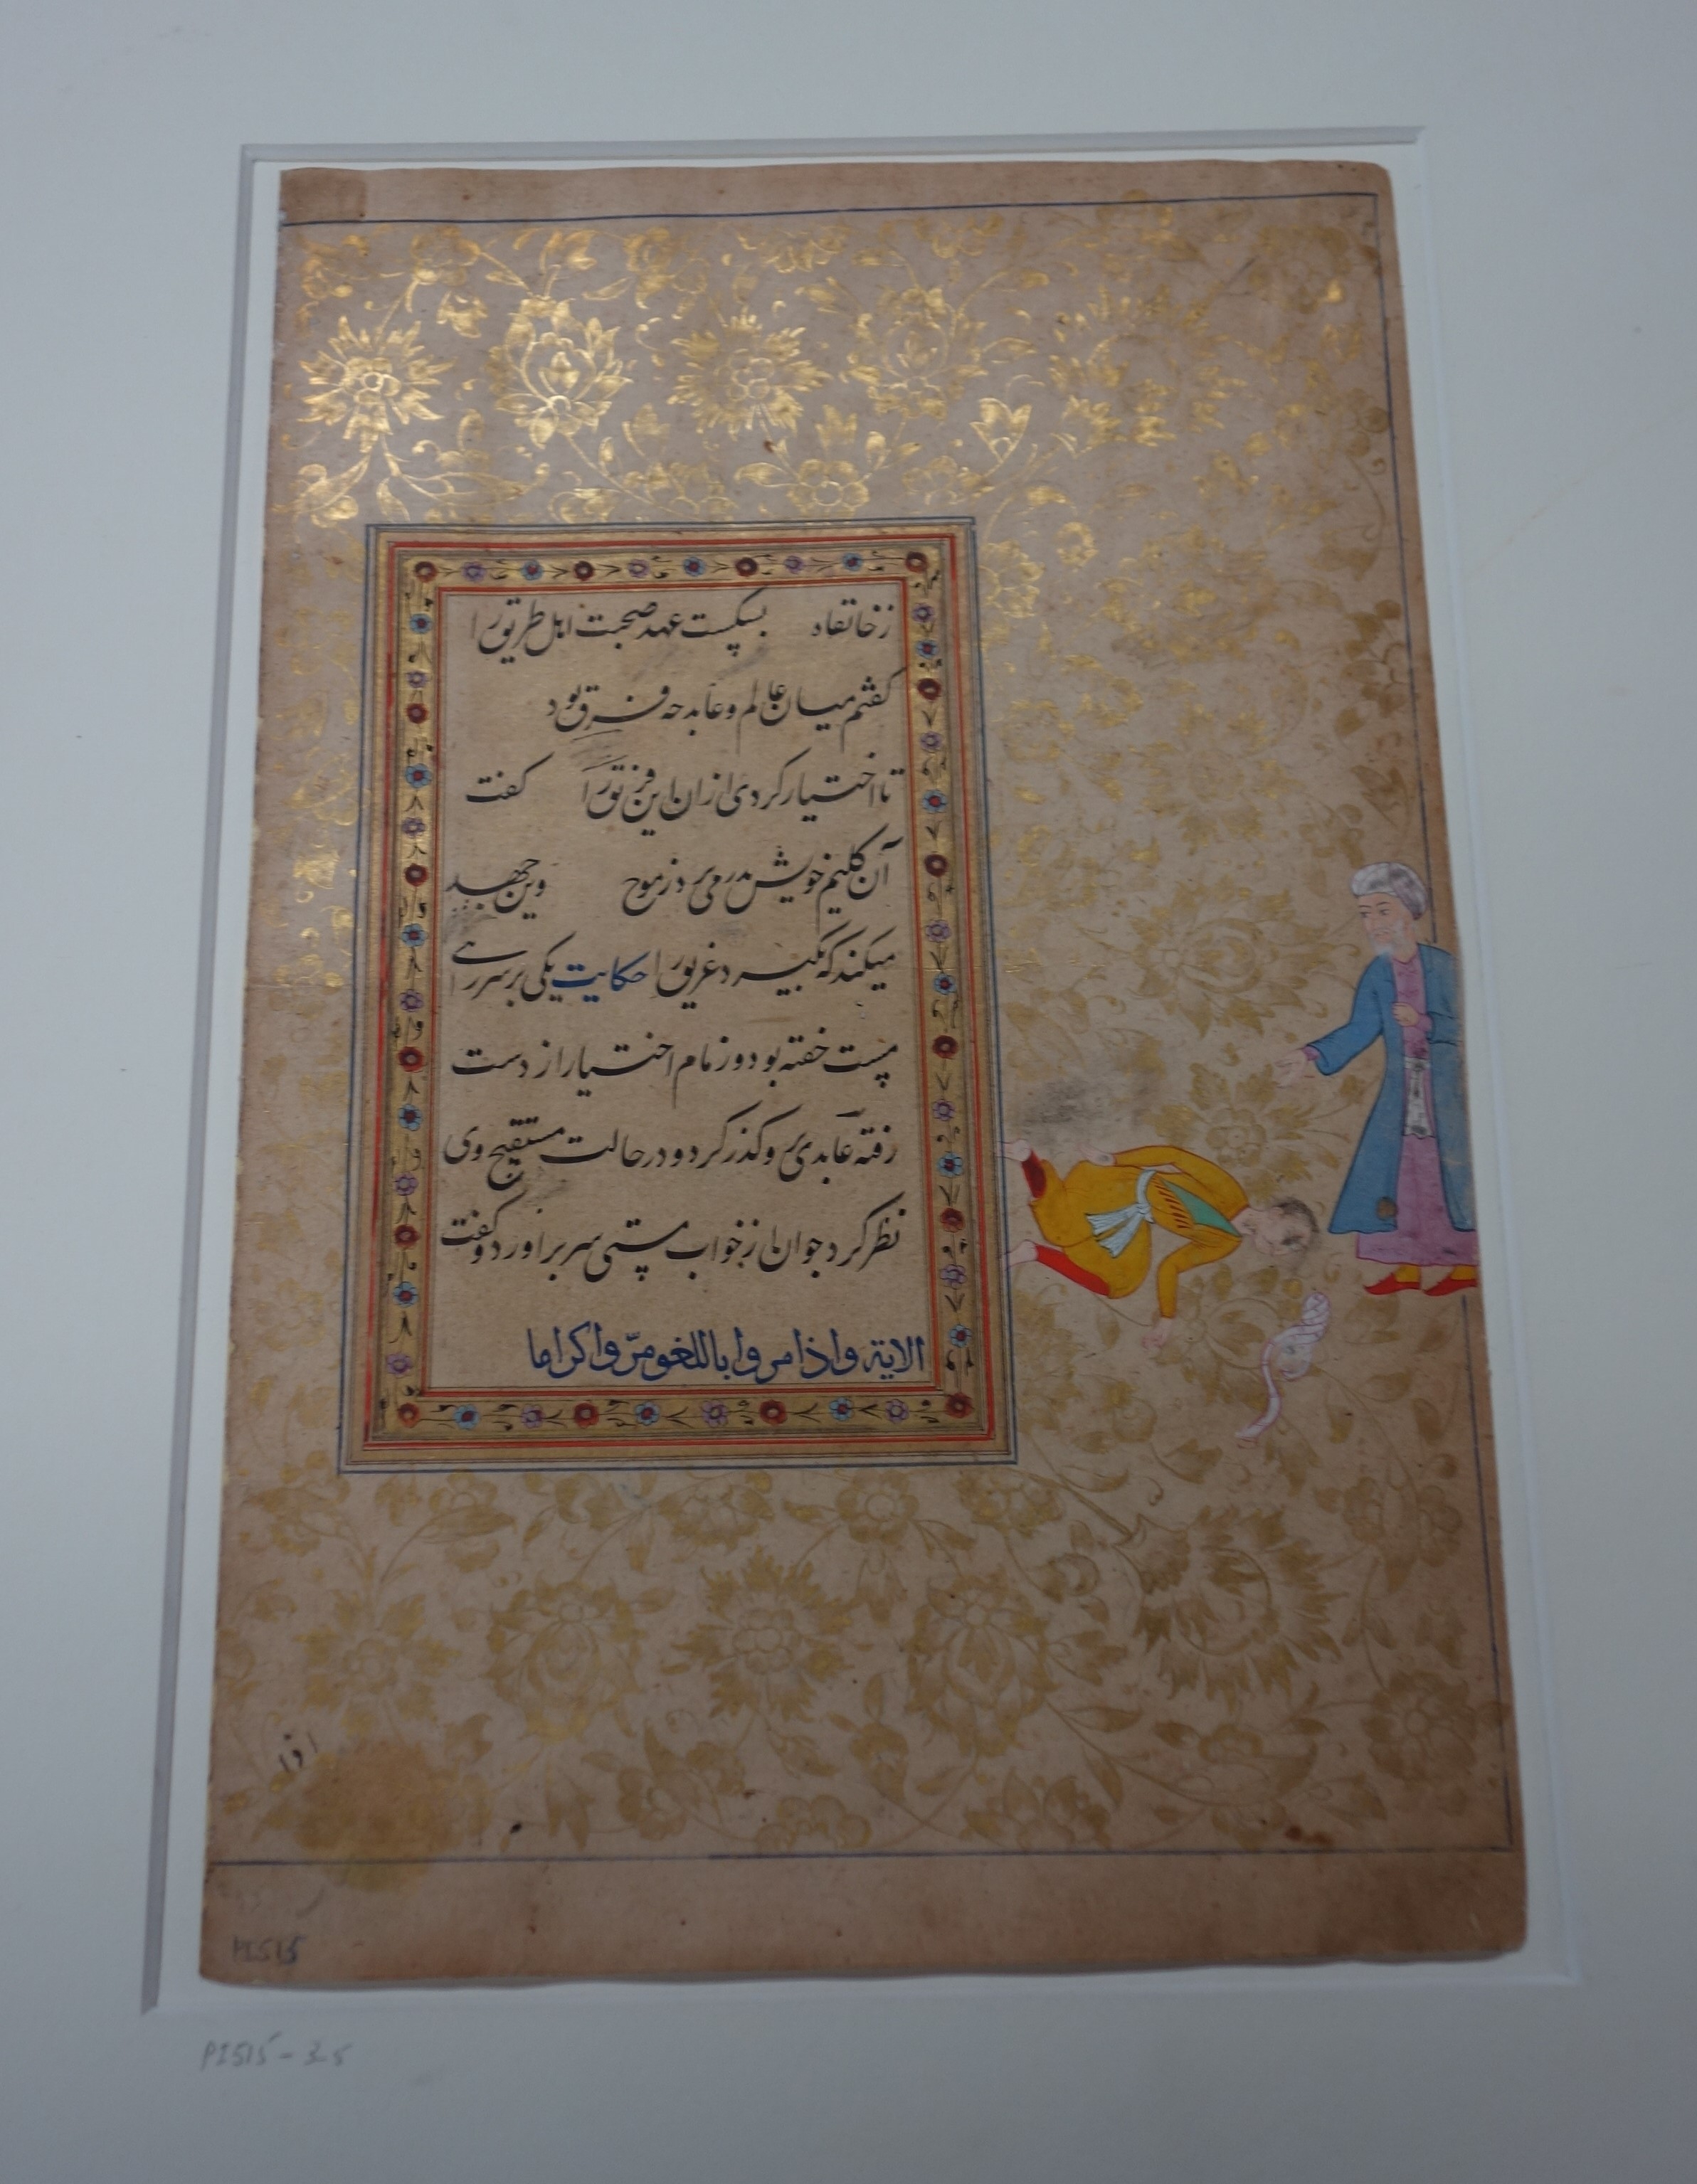 زخانقاه بشکست عهد صحبت اهل طریق را
گفتم میان عالم و عابد چه فرق بود
تا اختیار کردی ازان این فریق را گفت
آن گلیم خویش بدر می‌برد ز موج وین جهد
میکند که بگیرد غریق را حکایت یکی بر سر راهی
مست خفته بود و زمام اختیار از دست
رفته عابدی برو گذر کرد و در حالت مستقبح وی
نظر کرد جوان از خواب مستی سر برآورد و گفت
الایة واذا مروا باللغو مرّوا کراما
اذا
PI515
PI515-35